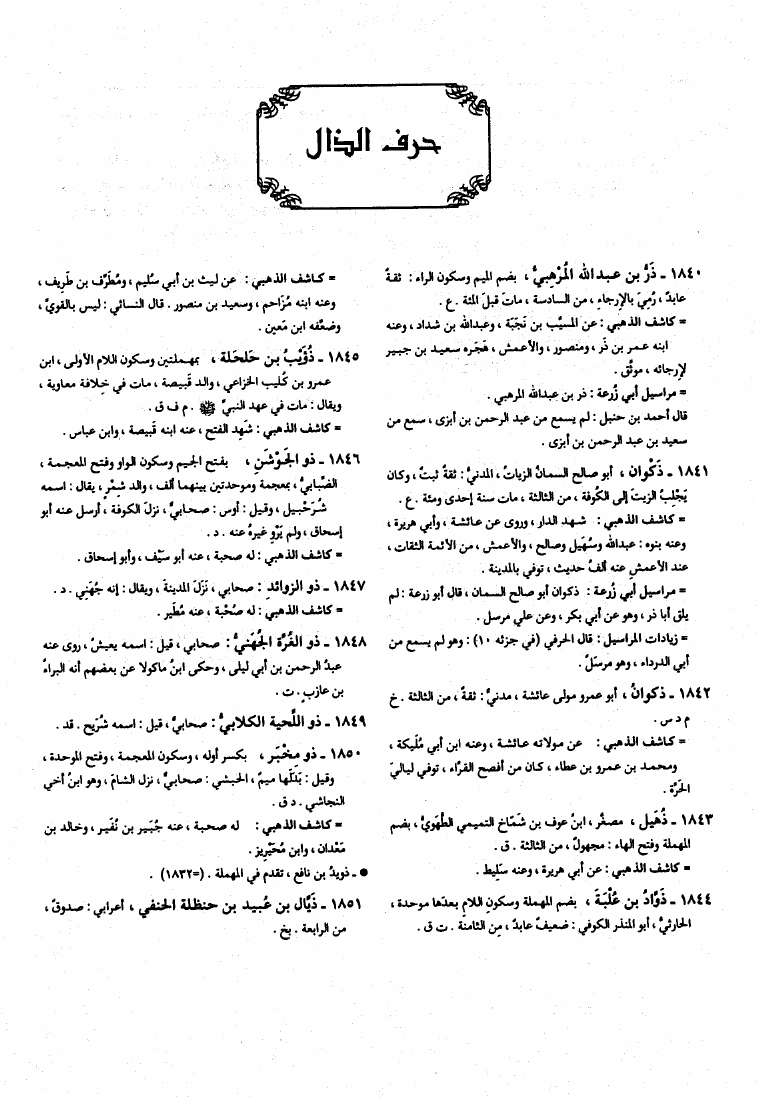 حرف الذال
١٨٤٠ ـ ذَرُّ بن عبدالله المُرْهِبيُّ ، بضم الميم وسكون الراء : ثقةٌ
عابدٌ ، رُمِيَ بالإرجاءِ ، من السادسة ، ماتَ قبلَ المئة . ع .
= كاشف الذهبي : عن المسيَّب بن نَجَبَة ، وعبدالله بن شداد ، وعنه
ابنه عمر بن ذَر ، ومنصور ، والأعمش ، هَجَره سعيد بن جبير
لإرجائه ، موثَّق .
= مراسيل أبي زُرعة : ذر بن عبدالله المرهبي .
قال أحمد بن حنبل : لم يسمع من عبد الرحمن بن أبزى ، سمع من
سعيد بن عبد الرحمن بن أبزى .
١٨٤١ ـ ذَكْوان ، أبو صالح السمانُ الزياتُ ، المدنيُّ : ثقةٌ ثبتٌ ، وكان
يَجْلِبُ الزيتَ إلى الكُوفة ، من الثالثة ، مات سنة إحدى ومئة . ع .
= كاشف الذهبي : شهد الدار ، وروى عن عائشة ، وأبي هريرة ،
وعنه بنوه : عبدالله وسُهَيل وصالح ، والأعمش ، من الأئمة الثقات ،
عند الأعمش عنه ألفُ حديث ، توفي بالمدينة .
= مراسيل أبي زُرعة : ذكوان أبو صالح السمان ، قال أبو زرعة : لم
يلق أبا ذر ، وهو عن أبي بكر ، وعن علي مرسل .
= زيادات المراسيل : قال الحرفي (في جزئه ١٠) : وهو لم يسمع من
أبي الدرداء ، وهو مرسَلٌ .
١٨٤٢ ـ ذكوانُ ، أبو عمرو مولى عائشة ، مدنيٌّ : ثقةٌ ، من الثالثة . خ
م د س .
= كاشف الذهبي : عن مولاته عائشة ، وعنه ابن أبي مُلَيكة ،
ومحمد بن عمرو بن عطاء ، كان من أفصح القرَّاء ، توفي لياليَ
الحَرَّة .
١٨٤٣ ـ ذُهَيل ، مصغَّر ، ابنُ عوف بن شَمَّاخ التميمي الطُّهَويُّ ، بضم
المهملة وفتح الهاء : مجهولٌ ، من الثالثة . ق .
= كاشف الذهبي : عن أبي هريرة ، وعنه سَلِيط .
١٨٤٤ ـ ذَوَّادُ بن عُلْبَةَ ، بضم المهملة وسكون اللام بعدَها موحدة ،
الحارثيُّ ، أبو المنذر الكوفي : ضعيفٌ عابدٌ ، مِن الثامنة . ت ق .
= كاشف الذهبي : عن ليث بن أبي سُليم ، ومُطرِّف بن طَريف ،
وعنه ابنه مُزاحم ، وسعيد بن منصور . قال النسائي : ليس بالقويّ ،
وضعَّفه ابن مَعين .
١٨٤٥ ـ ذُؤَيْبُ بن حَلحَلة ، بمهملتين وسكون اللام الأولى ، ابن
عمرو بن كُليب الخزاعي ، والد قَبِيصة ، مات في خلافة معاوية ،
ويقال : مات في عهد النبيِّ ﷺ . م ف ق .
= كاشف الذهبي : شَهِد الفتح ، عنه ابنه قَبيصة ، وابن عباس .
١٨٤٦ ـ ذو الجَوْشَنِ ، بفتح الجيم وسكون الواو وفتح المعجمة ،
الضِّبابيُّ ، بمعجمة وموحدتين بينهما ألف ، والد شِمْرٍ ، يقال : اسمه
شُرَحْبيل ، وقيل : أوس : صحابيٌّ ، نزلَ الكوفة ، أرسل عنه أبو
إسحاق ، ولم يَرْوِ غيرهُ عنه . د .
= كاشف الذهبي : له صحبة ، عنه أبو سَيْف ، وأبو إسحاق .
١٨٤٧ ـ ذو الزوائدِ : صحابي ، نَزَلَ المدينةَ ، ويقال : إنه جُهَني . د .
= كاشف الذهبي : له صُحْبة ، عنه مُطَير .
١٨٤٨ ـ ذو الغُرَّة الجُهَنيُّ : صحابي ، قيل : اسمه يعيشُ ، روى عنه
عبدُ الرحمن بن أبي ليلى ، وحكى ابنُ ماكولا عن بعضهم أنه البراءُ
بن عازبٍ . ت .
١٨٤٩ ـ ذو اللِّحية الكلابيُّ : صحابيٌّ ، قيل : اسمه شُرَيح . قد .
١٨٥٠ ـ ذو مِخْبَر ، بكسر أوله ، وسكون المعجمة ، وفتح الموحدة ،
وقيل : بَدَلَها ميمٌ ، الحبشي : صحابيٌّ ، نزل الشامَ ، وهو ابنُ أخي
النجاشي . د ق .
= كاشف الذهبي : له صحبة ، عنه جُبَير بن نُفَير ، وخالد بن
مَعْدان ، وابن مُحَيْريز .
● ـ ذويدُ بن نافع ، تقدم في المهملة . (=١٨٣٢) .
١٨٥١ ـ ذَيَّال بن عُبيد بن حنظلة الحنفي ، أعرابي : صدوقٌ ،
من الرابعة . بخ .